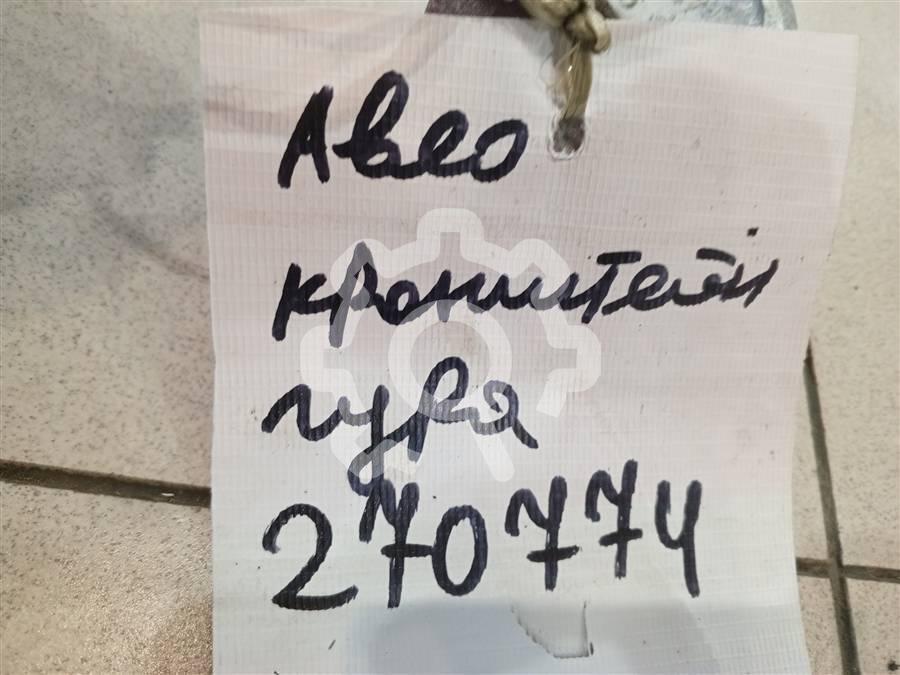 Авео
кронштейн
гура
270774